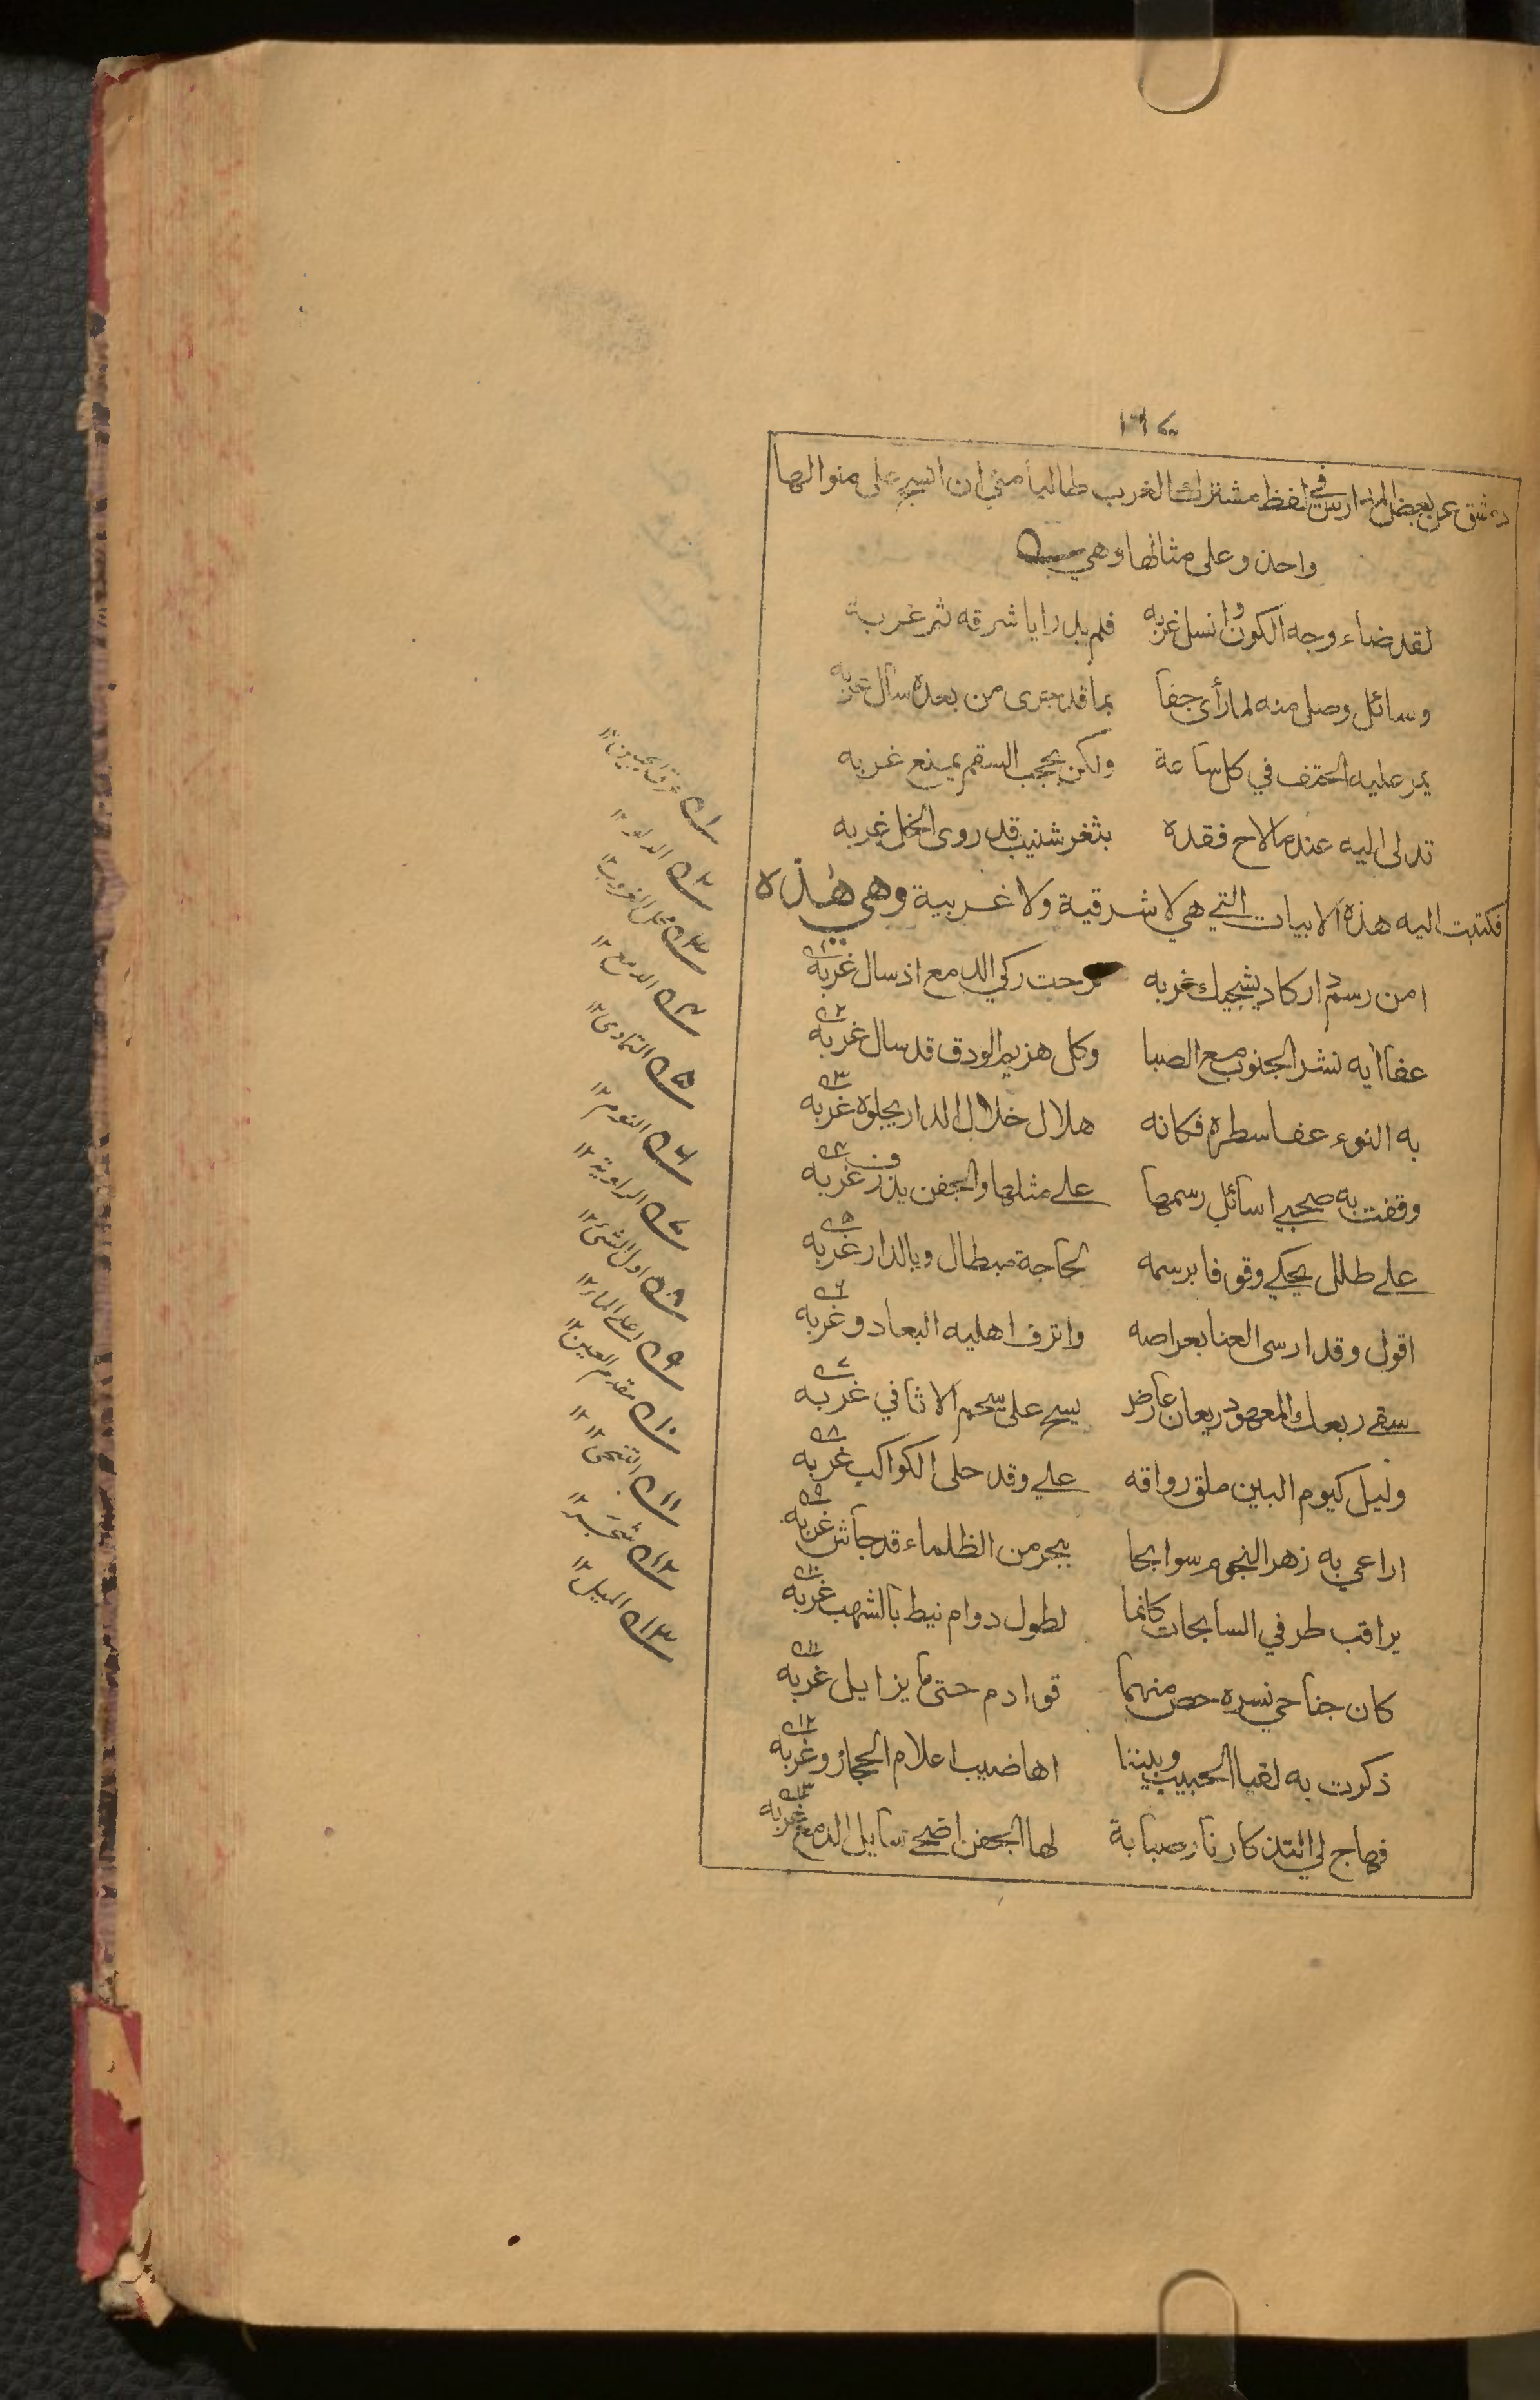 ١٦٧
دمشق عن بعض المدارس في لفظ مشترك الغرب طالبا مني ان انسج على منوالها
واحذو على مثالها وهي
لقد ضاء وجه الكون وانسل غربه فلم يدر ايا شرقه ثم غربه
وسائل وصل منه لما رأى جفا بما قد جرى من بعده سال غربه
يمر عليه الحتف في كل ساعة ولكن بحجب السقم يمنع غربه
تدلى اليه عندما لاح فقده بثغر شنيب قد روى الخل غربه
فكتبت اليه هذه الابيات التي هي لا شرقية ولا غربية وهي هذه
امن رسم دار كاد يشجيك غربه نزحت ركي الدمع اذ سال غربه ١
عفا آيه نشر الجنوب مع الصبا وكل هزيم الودق قد سال غربه ٢
به النوء عفا سطره فكانه هلال خلال الدار يجلوه غربه ٣
وقفت به صحبي اسائل رسمها على مثلها والجفن يذرف غربه ٤
على طلل يحكي وقوفا برسمه لحاجة مبطال وبالدار غربه ٥
اقول وقد ارسى العنا بعراصه واترف اهليه البعاد وغربه ٦
سقى ربعك المعهود ريعان عارض يسح على سحم الاثافي غربه ٧
وليل كيوم البين ملق رواقه علي وقد حلى الكواكب غربه ٨
اراعي به زهر النجوم سوابحا ببحر من الظلماء قد جاش غربه ٩
يراقب طرفي السابحات كانما لطول دوام نيط بالشهب غربه ١٠
كان جناحي نسره حص منهما قوادم حتى ما يزايل غربه ١١
ذكرت به لقيا الحبيب وبيننا اهاضيب اعلام الحجاز وغربه ١٢
فهاج لي التذكار نار صبابة لها الجفن اضحى سايل الدمع غربه ١٣
١ عرق الجبين ١٢
٢ الدلو ١٢
٣ محل الغروب ١٢
٤ الدمع ١٢
٥ التمادي ١٢
٦ النوم ١٢
٧ الراوية ١٢
٨ اول الشئ ١٢
٩ اعلى الماء ١٢
١٠ مقدم العين ١٢
١١ التنحى ١٢
١٢ شجر ١٢
١٣ المسيل ١٢